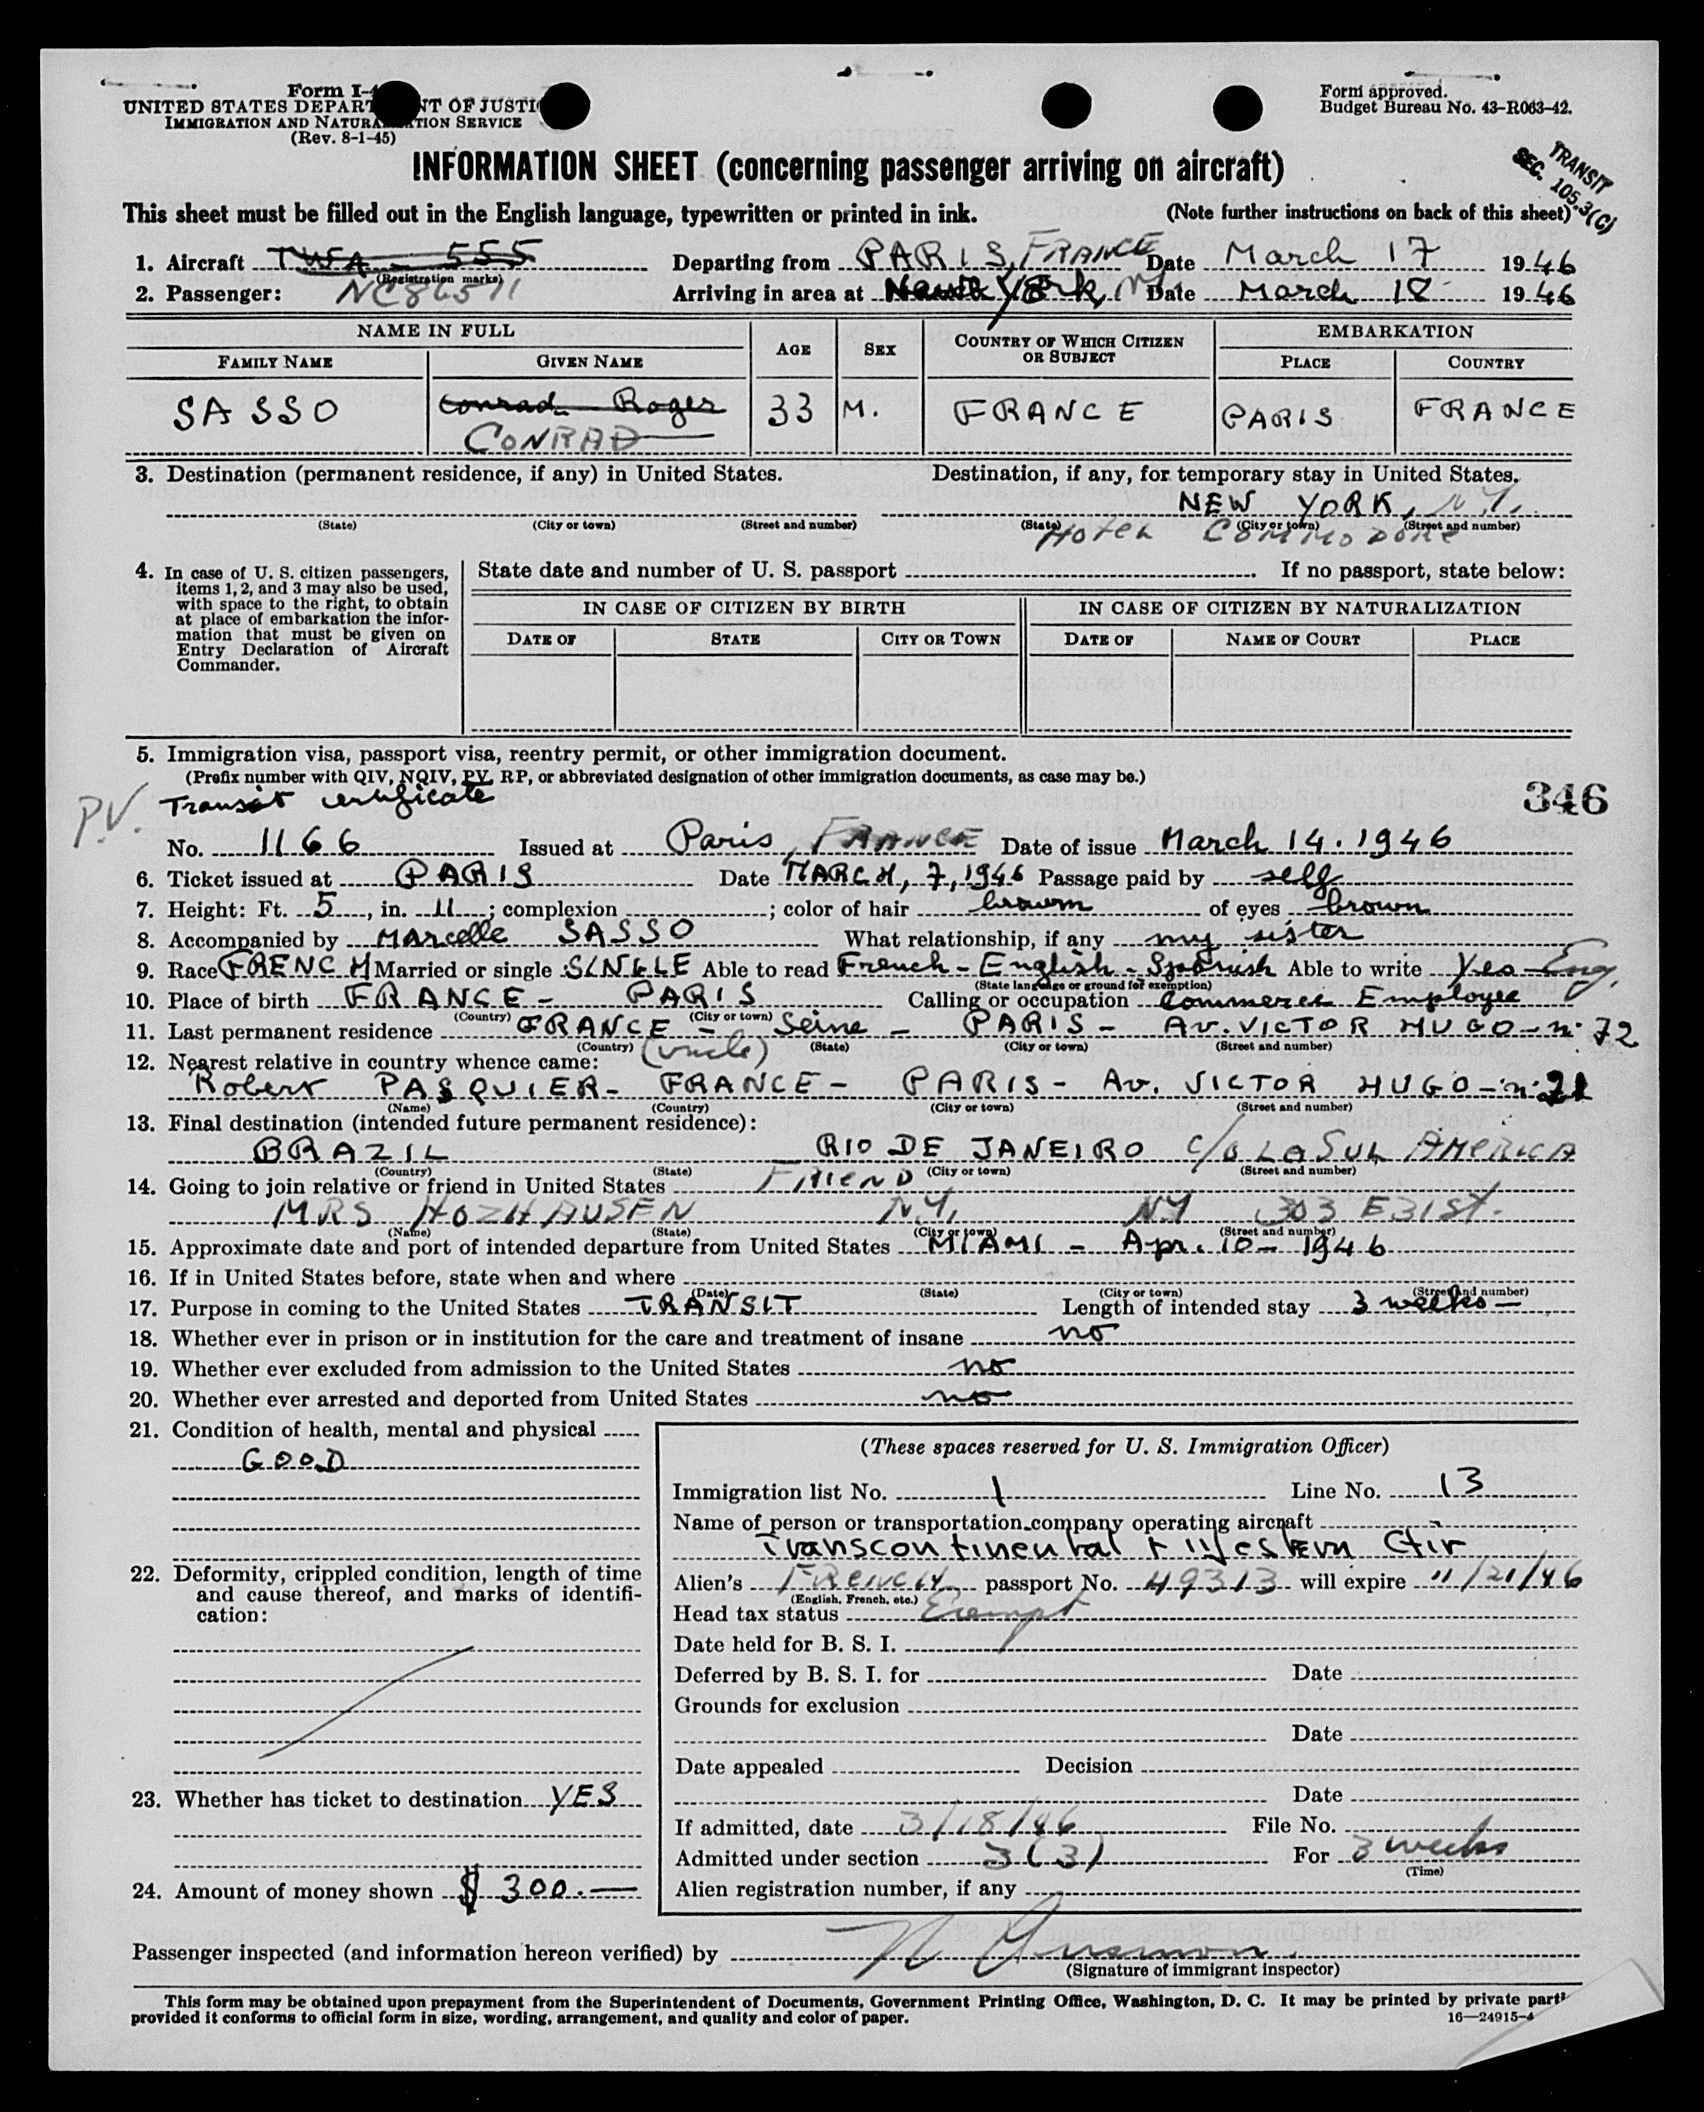 Form I-4
UNITED STATES DEPARTMENT OF JUSTICE
IMMIGRATION AND NATURALIZATION SERVICE
(Rev. 8-1-45)
Form approved.
Budget Bureau No. 43-R063-42.
TRANSIT
SEC. 105.3(C)
INFORMATION SHEET (concerning passenger arriving on aircraft)
This sheet must be filled out in the English language, typewritten or printed in ink. (Note further instructions on back of this sheet)
1. Aircraft TWA - 555 Departing from PARIS, FRANCE Date March 17 1946
(Registration marks)
2. Passenger: NC86511 Arriving in area at New York, NY Date March 18 1946
NAME IN FULL AGE SEX COUNTRY OF WHICH CITIZEN OR SUBJECT EMBARKATION
FAMILY NAME GIVEN NAME PLACE COUNTRY
SASSO Conrad Roger 33 M. FRANCE PARIS FRANCE
CONRAD
3. Destination (permanent residence, if any) in United States. Destination, if any, for temporary stay in United States.
NEW YORK, N.Y.
(State) (City or town) (Street and number) (State) (City or town) (Street and number)
HOTEL COMMODORE
4. In case of U. S. citizen passengers, items 1, 2, and 3 may also be used, with space to the right, to obtain at place of embarkation the information that must be given on Entry Declaration of Aircraft Commander.
State date and number of U. S. passport If no passport, state below:
IN CASE OF CITIZEN BY BIRTH IN CASE OF CITIZEN BY NATURALIZATION
DATE OF STATE CITY OR TOWN DATE OF NAME OF COURT PLACE
5. Immigration visa, passport visa, reentry permit, or other immigration document.
(Prefix number with QIV, NQIV, PV, RP, or abbreviated designation of other immigration documents, as case may be.)
P.V. Transit certificate 346
No. 1166 Issued at Paris, FRANCE Date of issue March 14. 1946
6. Ticket issued at PARIS Date MARCH, 7, 1946 Passage paid by self
7. Height: Ft. 5, in. 11; complexion ; color of hair brown of eyes brown
8. Accompanied by Marcelle SASSO What relationship, if any my sister
9. Race FRENCH Married or single SINGLE Able to read French - English - Spanish Able to write Yes - Eng.
(State language or ground for exemption)
10. Place of birth FRANCE - PARIS Calling or occupation Commerce Employee
(Country) (City or town)
11. Last permanent residence FRANCE - Seine - PARIS - Av. VICTOR HUGO - n. 72
(Country) (State) (City or town) (Street and number)
12. Nearest relative in country whence came: (Uncle)
Robert PASQUIER - FRANCE - PARIS - Av. VICTOR HUGO - n. 21
(Name) (Country) (City or town) (Street and number)
13. Final destination (intended future permanent residence):
BRAZIL RIO DE JANEIRO C/O LA SUL AMERICA
(Country) (State) (City or town) (Street and number)
14. Going to join relative or friend in United States FRIEND
MRS HOZHAUSEN N.Y. NY 303 E 31 St.
(Name) (State) (City or town) (Street and number)
15. Approximate date and port of intended departure from United States MIAMI - Apr. 10 - 1946
16. If in United States before, state when and where
(Date) (State) (City or town) (Street and number)
17. Purpose in coming to the United States TRANSIT Length of intended stay 3 weeks -
18. Whether ever in prison or in institution for the care and treatment of insane no
19. Whether ever excluded from admission to the United States no
20. Whether ever arrested and deported from United States no
21. Condition of health, mental and physical
GOOD
22. Deformity, crippled condition, length of time and cause thereof, and marks of identification:
23. Whether has ticket to destination YES
24. Amount of money shown $ 300.—
(These spaces reserved for U. S. Immigration Officer)
Immigration list No. 1 Line No. 13
Name of person or transportation company operating aircraft
Transcontinental & Western Air
Alien's FRENCH passport No. 49313 will expire 11/21/46
(English, French, etc.)
Head tax status Exempt
Date held for B. S. I.
Deferred by B. S. I. for Date
Grounds for exclusion
Date
Date appealed Decision
Date
If admitted, date 3/18/46 File No.
Admitted under section 3(3) For 3 weeks
(Time)
Alien registration number, if any
Passenger inspected (and information hereon verified) by
(Signature of immigrant inspector)
This form may be obtained upon prepayment from the Superintendent of Documents, Government Printing Office, Washington, D. C. It may be printed by private parti
provided it conforms to official form in size, wording, arrangement, and quality and color of paper. 16—24915-4